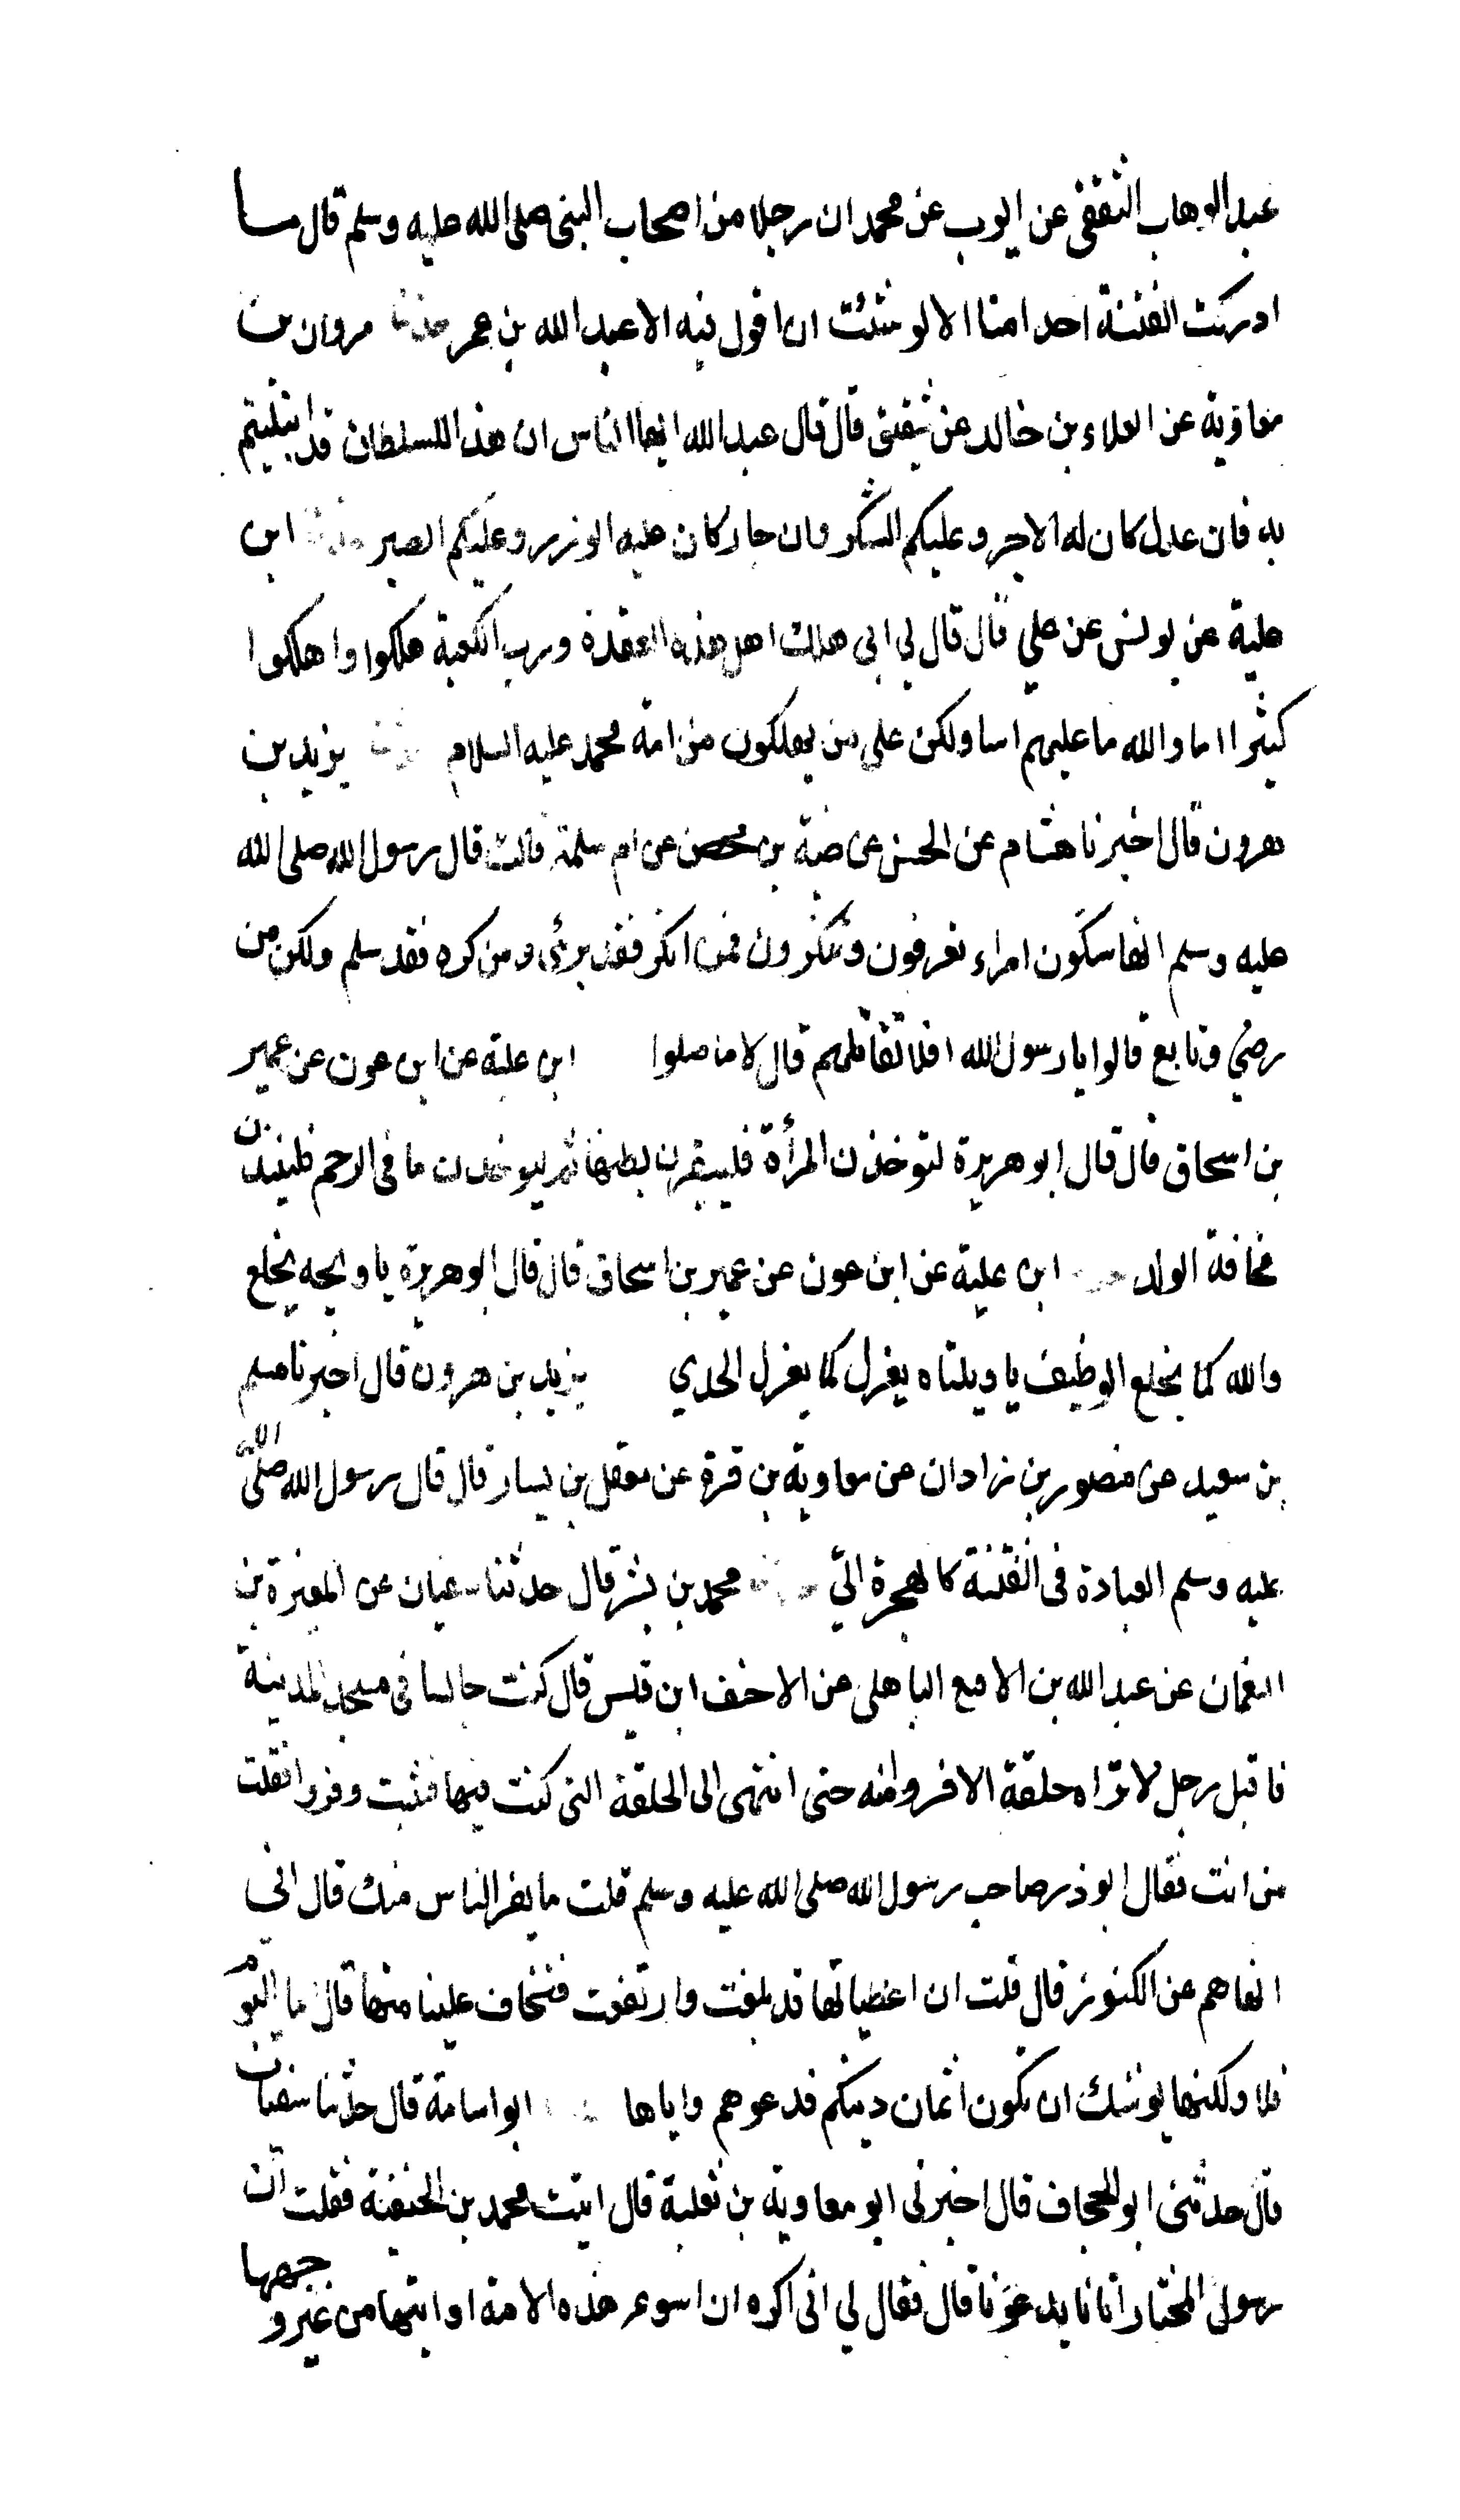 عبد الوهاب الثقفى عن ايوب عن محمد ان رجلا من اصحاب النبى صلى الله عليه وسلم قال ما
ادركت الفتنة احدا منا الا لو شئت ان اقول فيه الا عبد الله بن عمر حدثنا مروان بن
معاوية عن العلاء بن خالد عن شقيق قال قال عبد الله ايها الناس ان هذا السلطان قد ابتليتم
به فان عدل كان له الاجر وعليكم الشكر وان جار كان عليه الوزر وعليكم الصبر حدثنا ابن
علية عن يونس عن علي قال قال لي ابي هلك اهل هذه العقدة ورب الكعبة هلكوا واهلكوا
كثيرا اما والله ما عليهم اسا ولكن على من يهلكون من امة محمد عليه السلام حدثنا يزيد بن
هرون قال اخبرنا هشام عن الحسن عن ضبة بن محصن عن ام سلمة قالت قال رسول الله صلى الله
عليه وسلم انها ستكون امراء تعرفون وتنكرون فمن انكر فقد برئ ومن كره فقد سلم ولكن من
رضي وتابع قالوا يا رسول الله افلا نقاتلهم قال لا ما صلوا ابن علية عن ابن عون عن عمير
بن اسحاق قال قال ابو هريرة لتوخذن المرأة فليبقرن بطنها ثم ليوخذن ما في الرحم فلينبذن
مخافة الولد حدثنا ابن علية عن ابن عون عن عمير بن اسحاق قال قال ابو هريرة يا ويحه يخلع
والله كما يخلع الوظيف يا ويلتاه يعزل كما يعزل الجدي يزيد بن هرون قال اخبرنا مسلم
بن سعيد عن منصور بن زاذان عن معاوية بن قرة عن معقل بن يسار قال قال رسول الله صلى الله
عليه وسلم العبادة فى الفتنة كالهجرة الىّ حدثنا محمد بن بشر قال حدثنا سفيان عن المغيرة بن
النعمان عن عبد الله بن الاقنع الباهلى عن الاحنف ابن قيس قال كنت جالسا فى مسجد المدينة
فاقبل رجل لا تراه حلقة الا فروا منه حتى انتهى الى الحلقة التى كنت فيها فثبت وفروا فقلت
من انت فقال ابو ذر صاحب رسول الله صلى الله عليه وسلم قلت ما يفر الناس منك قال انى
انهاهم عن الكنوز قال قلت ان اعطياتها قد بلغت وارتفعت فتخاف علينا منها قال اما اليوم
فلا ولكنها يوشك ان يكون اثمان دينكم فدعوهم واياها ابو اسامة قال حدثنا سفيان
قال حدثنى ابو الجحاف قال اخبرنى ابو معاوية بن ثعلبة قال اتيت محمد بن الحنفية فقلت ان
رسول المختار اتانا يدعونا قال فقال لي انى اكره ان اسوء هذه الامة او اتيها من غير وجهها